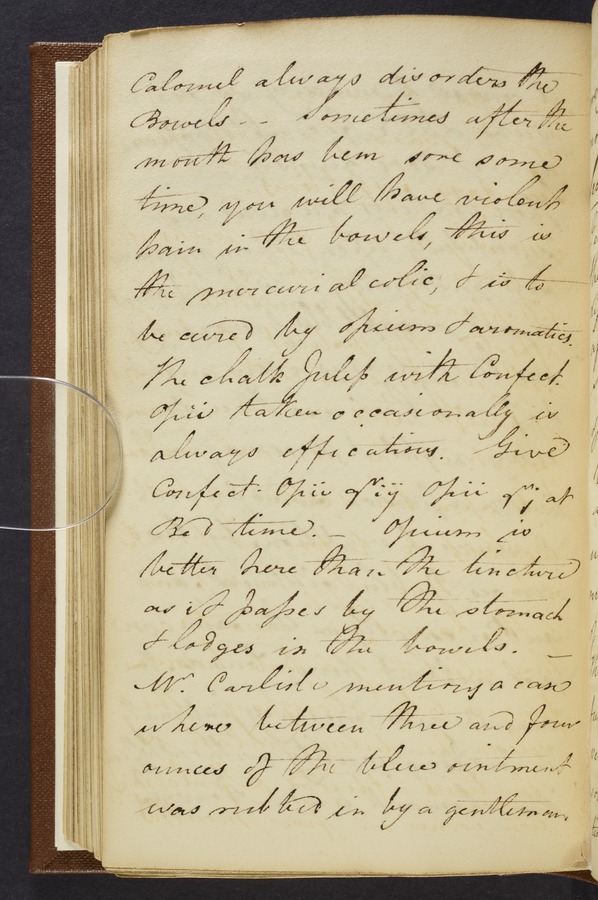 Calomel always disorders the
Bowels - - Sometimes after the
mouth has been sore some
time, you will have violent
pain in the bowels, this is
the mercurial colic, & is to
be cured by opium & aromatics.
The chalk Julep with Confect.
Opii taken occasionally is
always efficatious. Give
Confect. Opii grij Opii grj at
Bed time. - Opium is
better here than the tincture
as it passes by the stomach
& lodges in the bowels. -
Mr. Carlisle mentions a case
where between three and four
ounces of the blue ointment
was rubbed in by a gentleman.